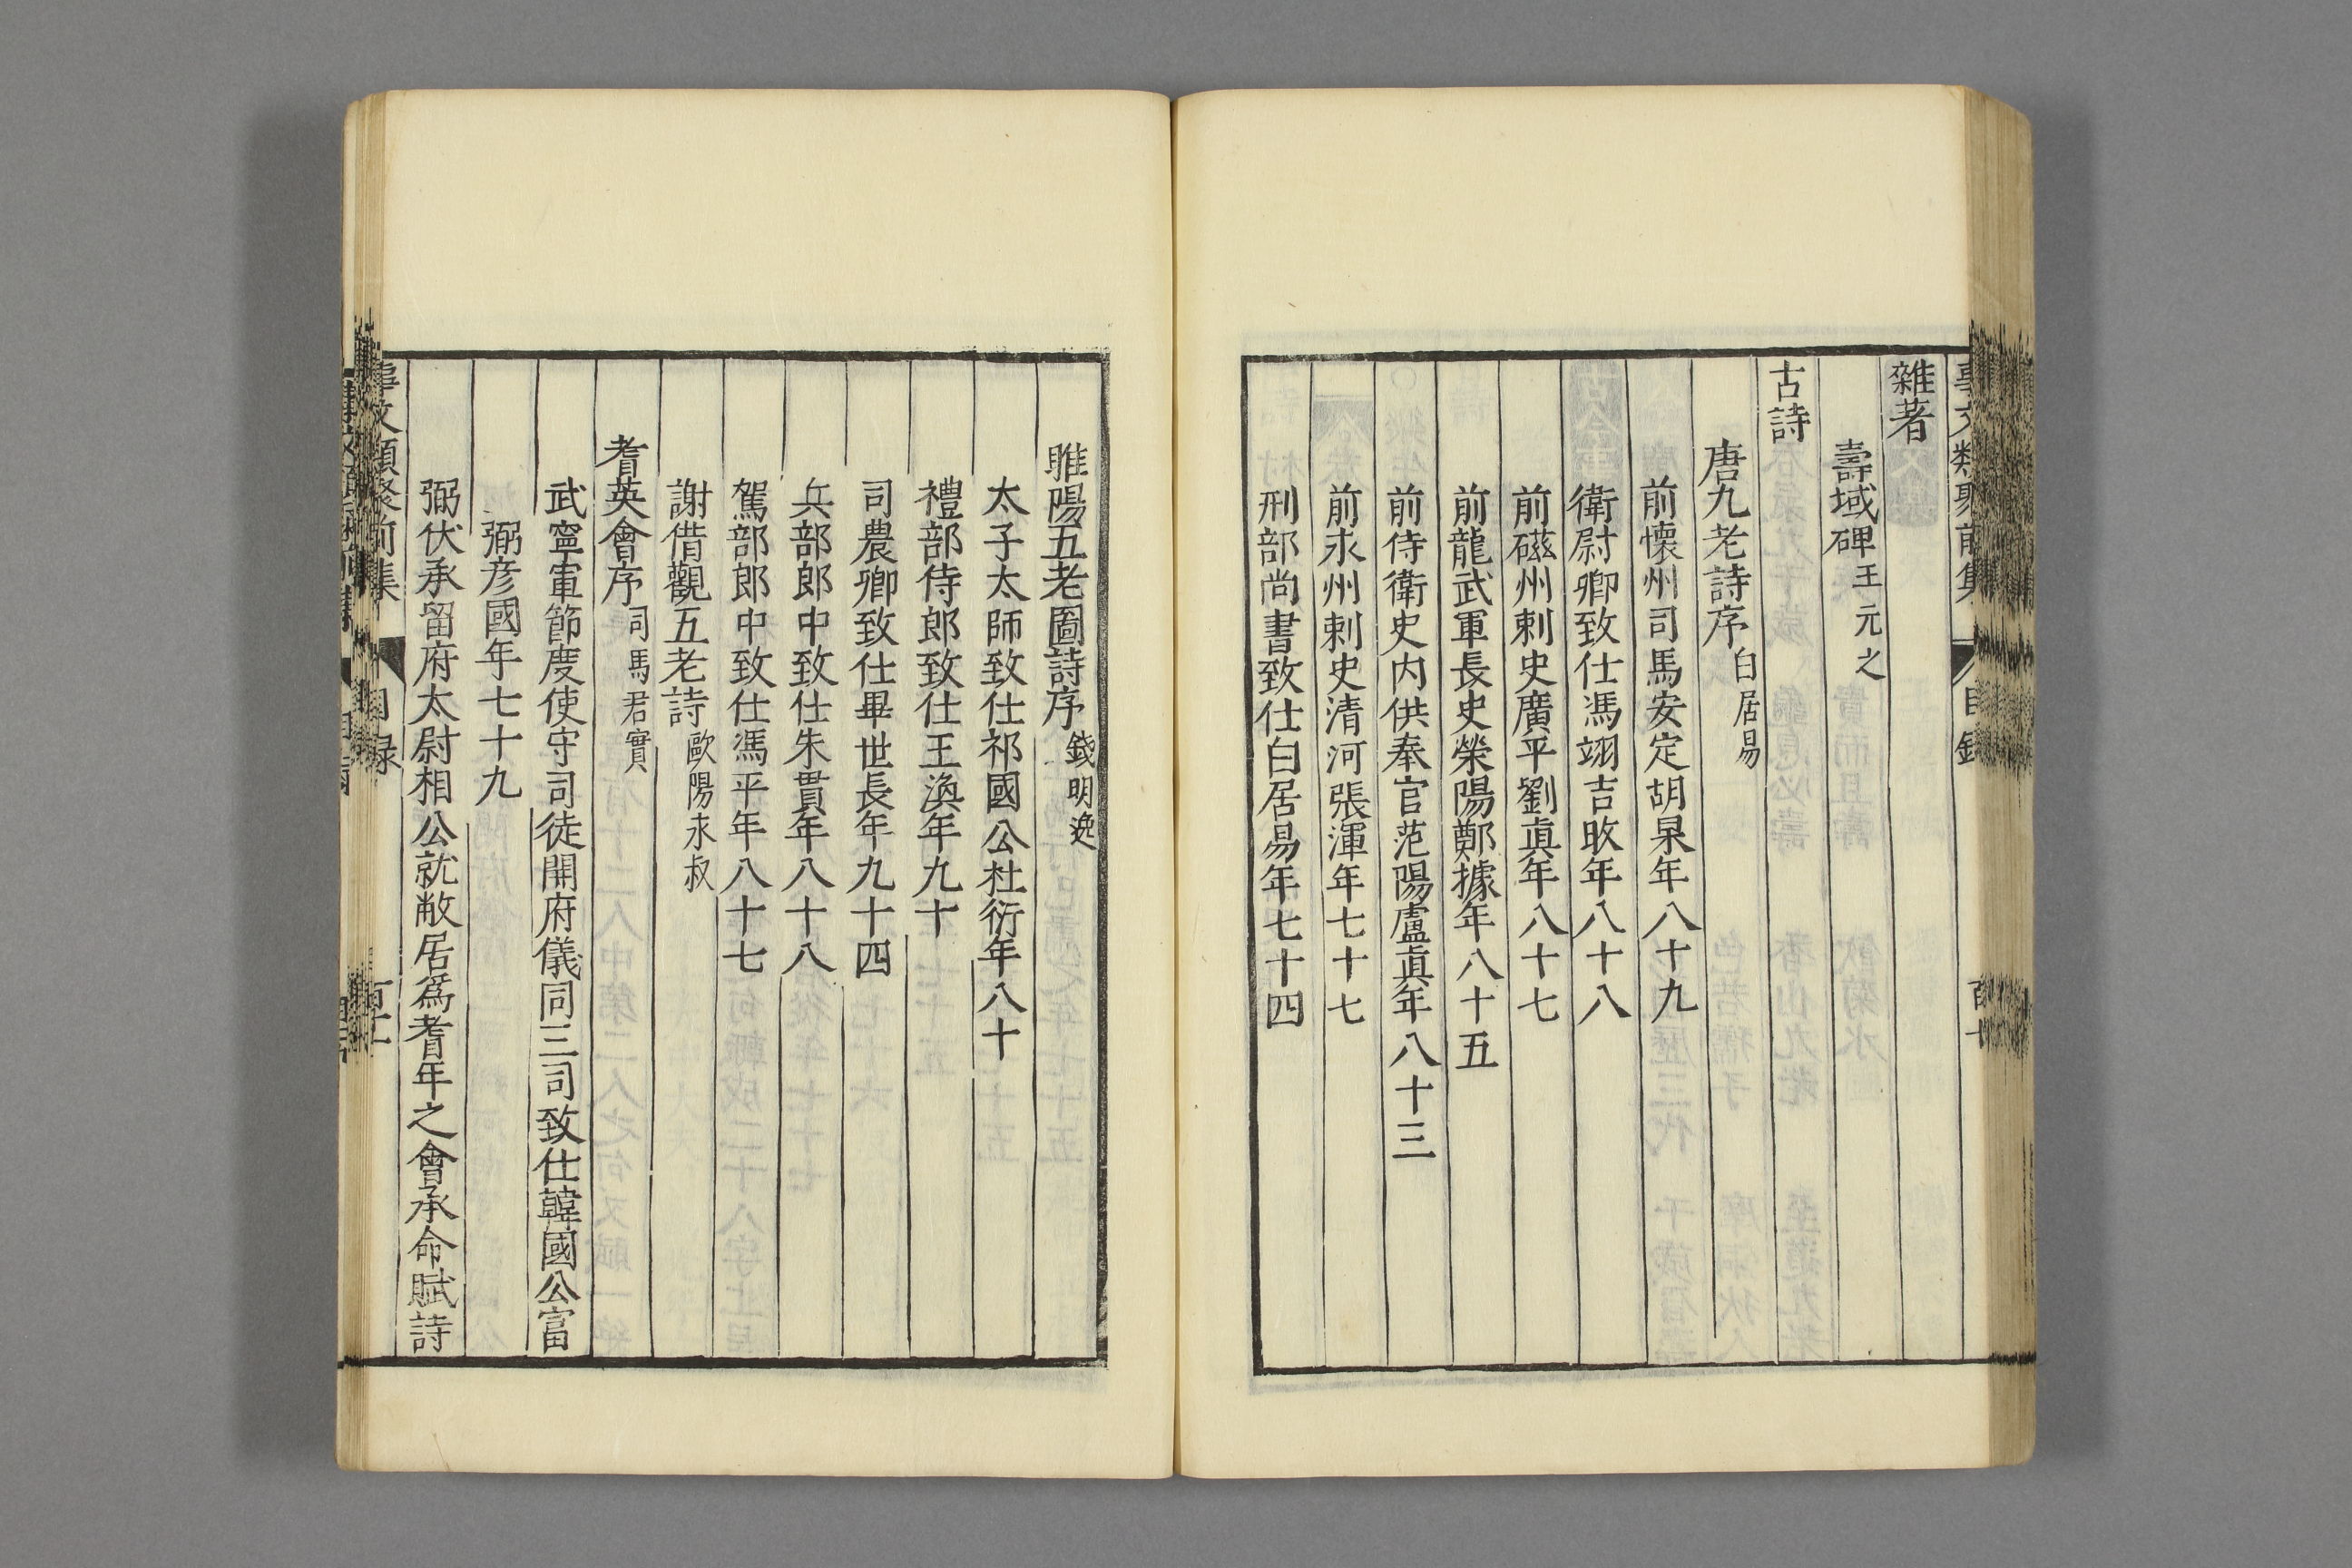 雜著
壽域碑王元之
古詩
唐九老詩序白居易
前懷州司馬安定胡杲年八十九
衛尉卿致仕馮翊吉旼年八十八
前磁州刺史廣平劉眞年八十七
前龍武軍長史滎陽鄭據年八十五
前侍衛史内供奉官范陽盧眞年八十三
前永州刺史清河張渾年七十七
刑部尚書致仕白居易年七十四
睢陽五老圖詩序錢明逸
太子太師致仕祁國公杜衍年八十
禮部侍郎致仕王渙年九十
司農卿致仕畢世長年九十四
兵部郎中致仕朱貫年八十八
駕部郎中致仕馮平年八十七
謝借觀五老詩歐陽永叔
耆英會序司馬君實
武寧軍節度使守司徒開府儀同三司致仕韓國公富
弼彦國年七十九
弼伏承留府太尉相公就敝居爲耆年之會承命賦詩